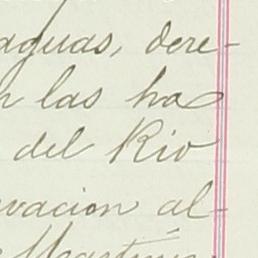 aguas, dere-
n las ha
del Rio
vacion al-
Martinez